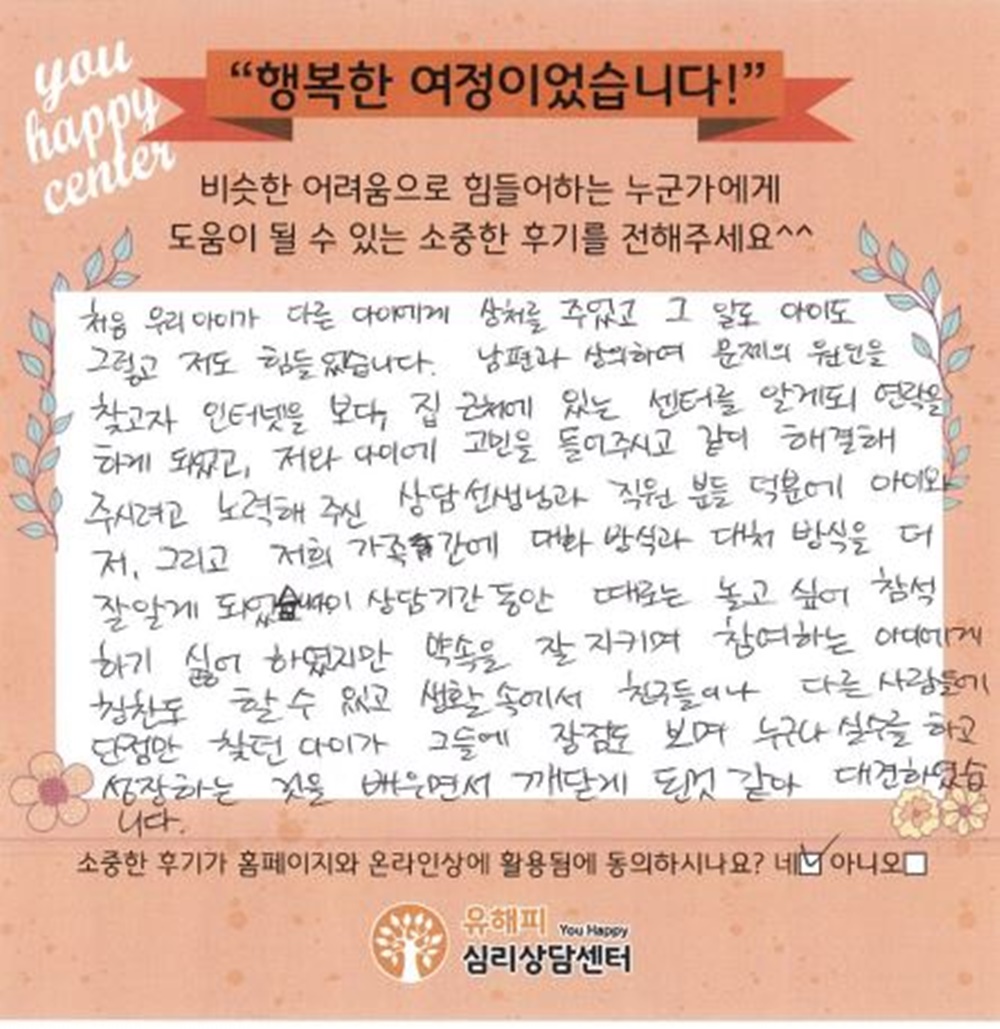 you
happy
center
“행복한 여정이었습니다!”
비슷한 어려움으로 힘들어하는 누군가에게
도움이 될 수 있는 소중한 후기를 전해주세요^^
처음 우리아이가 다른 아이에게 상처를 주었고 그 일로 아이도
그렇고 저도 힘들었습니다. 남편과 상의하여 문제의 원인을
찾고자 인터넷을 보다, 집 근처에 있는 센터를 알게되 연락을
하게 되었고, 저와 아이에 고민을 들어주시고 같이 해결해
주시려고 노력해 주신 상담선생님과 직원 분들 덕분에 아이와
저, 그리고 저희 가족간에 대화 방식과 대처 방식을 더
잘알게 되었 상담기간동안 때로는 놀고 싶어 참석
하기 싫어 하였지만 약속을 잘 지키며 참여하는 아이에게
칭찬도 할 수 있고 생활속에서 친구들이나 다른 사람들에
단점만 찾던 아이가 그들에 장점도 보며 누구나 실수를 하고
성장하는 것을 배우면서 깨닫게 된것 같아 대견하였습
니다.
소중한 후기가 홈페이지와 온라인상에 활용됨에 동의하시나요? 네☑ 아니오☐
유해피 You Happy
심리상담센터